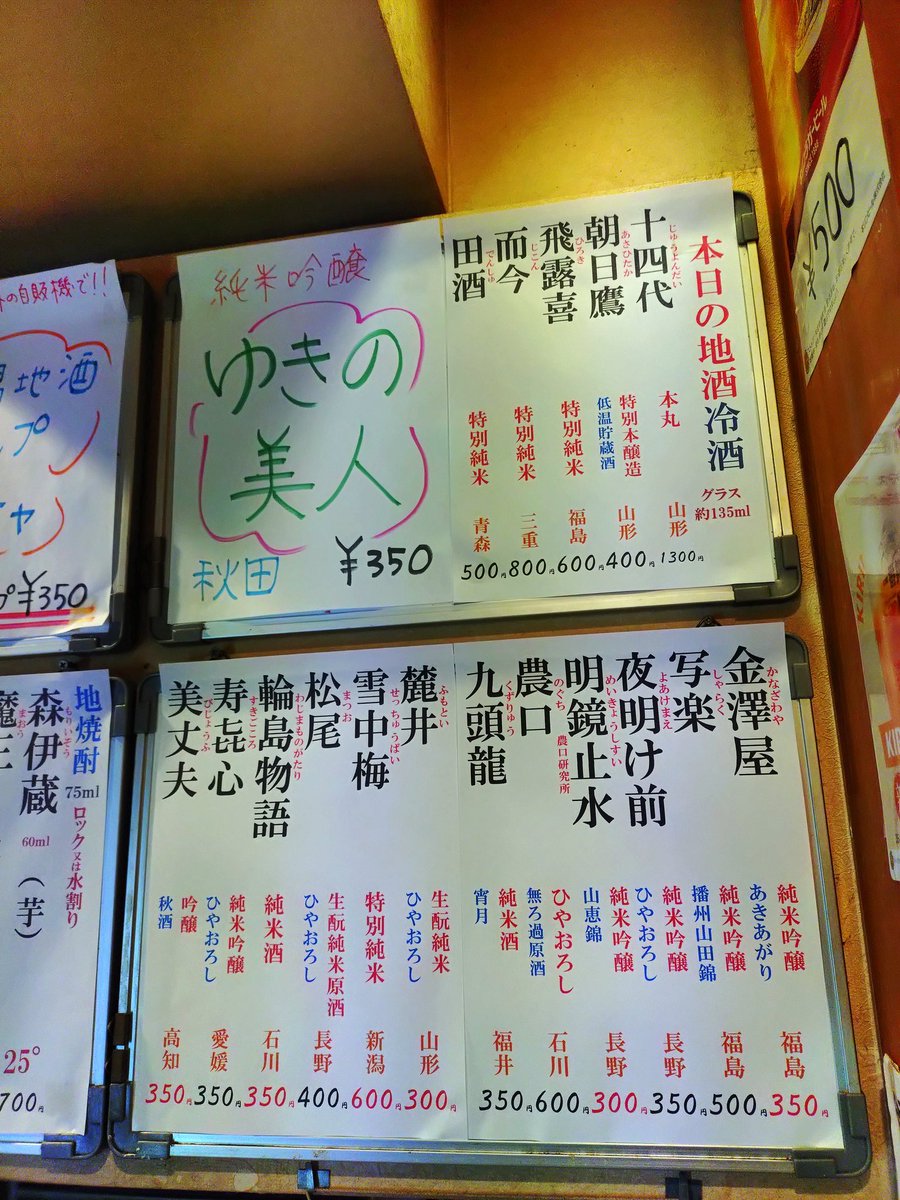 本日の地酒冷酒
グラス
約135ml
十四代
じゅうよんだい
本丸
山形
1300円
朝日鷹
あさひたか
特別本醸造
低温貯蔵酒
山形
400円
飛露喜
ひろき
特別純米
福島
600円
而今
じこん
特別純米
三重
800円
田酒
でんしゅ
特別純米
青森
500円
純米吟醸
ゆきの
美人
秋田
¥350
の自販機で!!
地酒
プ
¥350
金澤屋
かなざわや
純米吟醸
あきあがり
福島
350円
写楽
しゃらく
純米吟醸
播州山田錦
福島
500円
夜明け前
よあけまえ
純米吟醸
ひやおろし
長野
350円
明鏡止水
めいきょうしすい
純米吟醸
山恵錦
長野
300円
農口
のぐち
農口研究所
ひやおろし
無ろ過原酒
石川
600円
九頭龍
くずりゅう
純米酒
宵月
福井
350円
麓井
ふもとい
生酛純米
ひやおろし
山形
300円
雪中梅
せっちゅうばい
特別純米
新潟
600円
松尾
まつお
生酛純米原酒
ひやおろし
長野
400円
輪島物語
わじまものがたり
純米酒
石川
350円
寿㐂心
すきごころ
純米吟醸
ひやおろし
愛媛
350円
美丈夫
びじょうふ
吟醸
秋酒
高知
350円
地焼酎
75ml
ロック又は水割り
森伊蔵
もりいぞう
60ml
(芋)
25°
700円
魔王
まおう
¥500